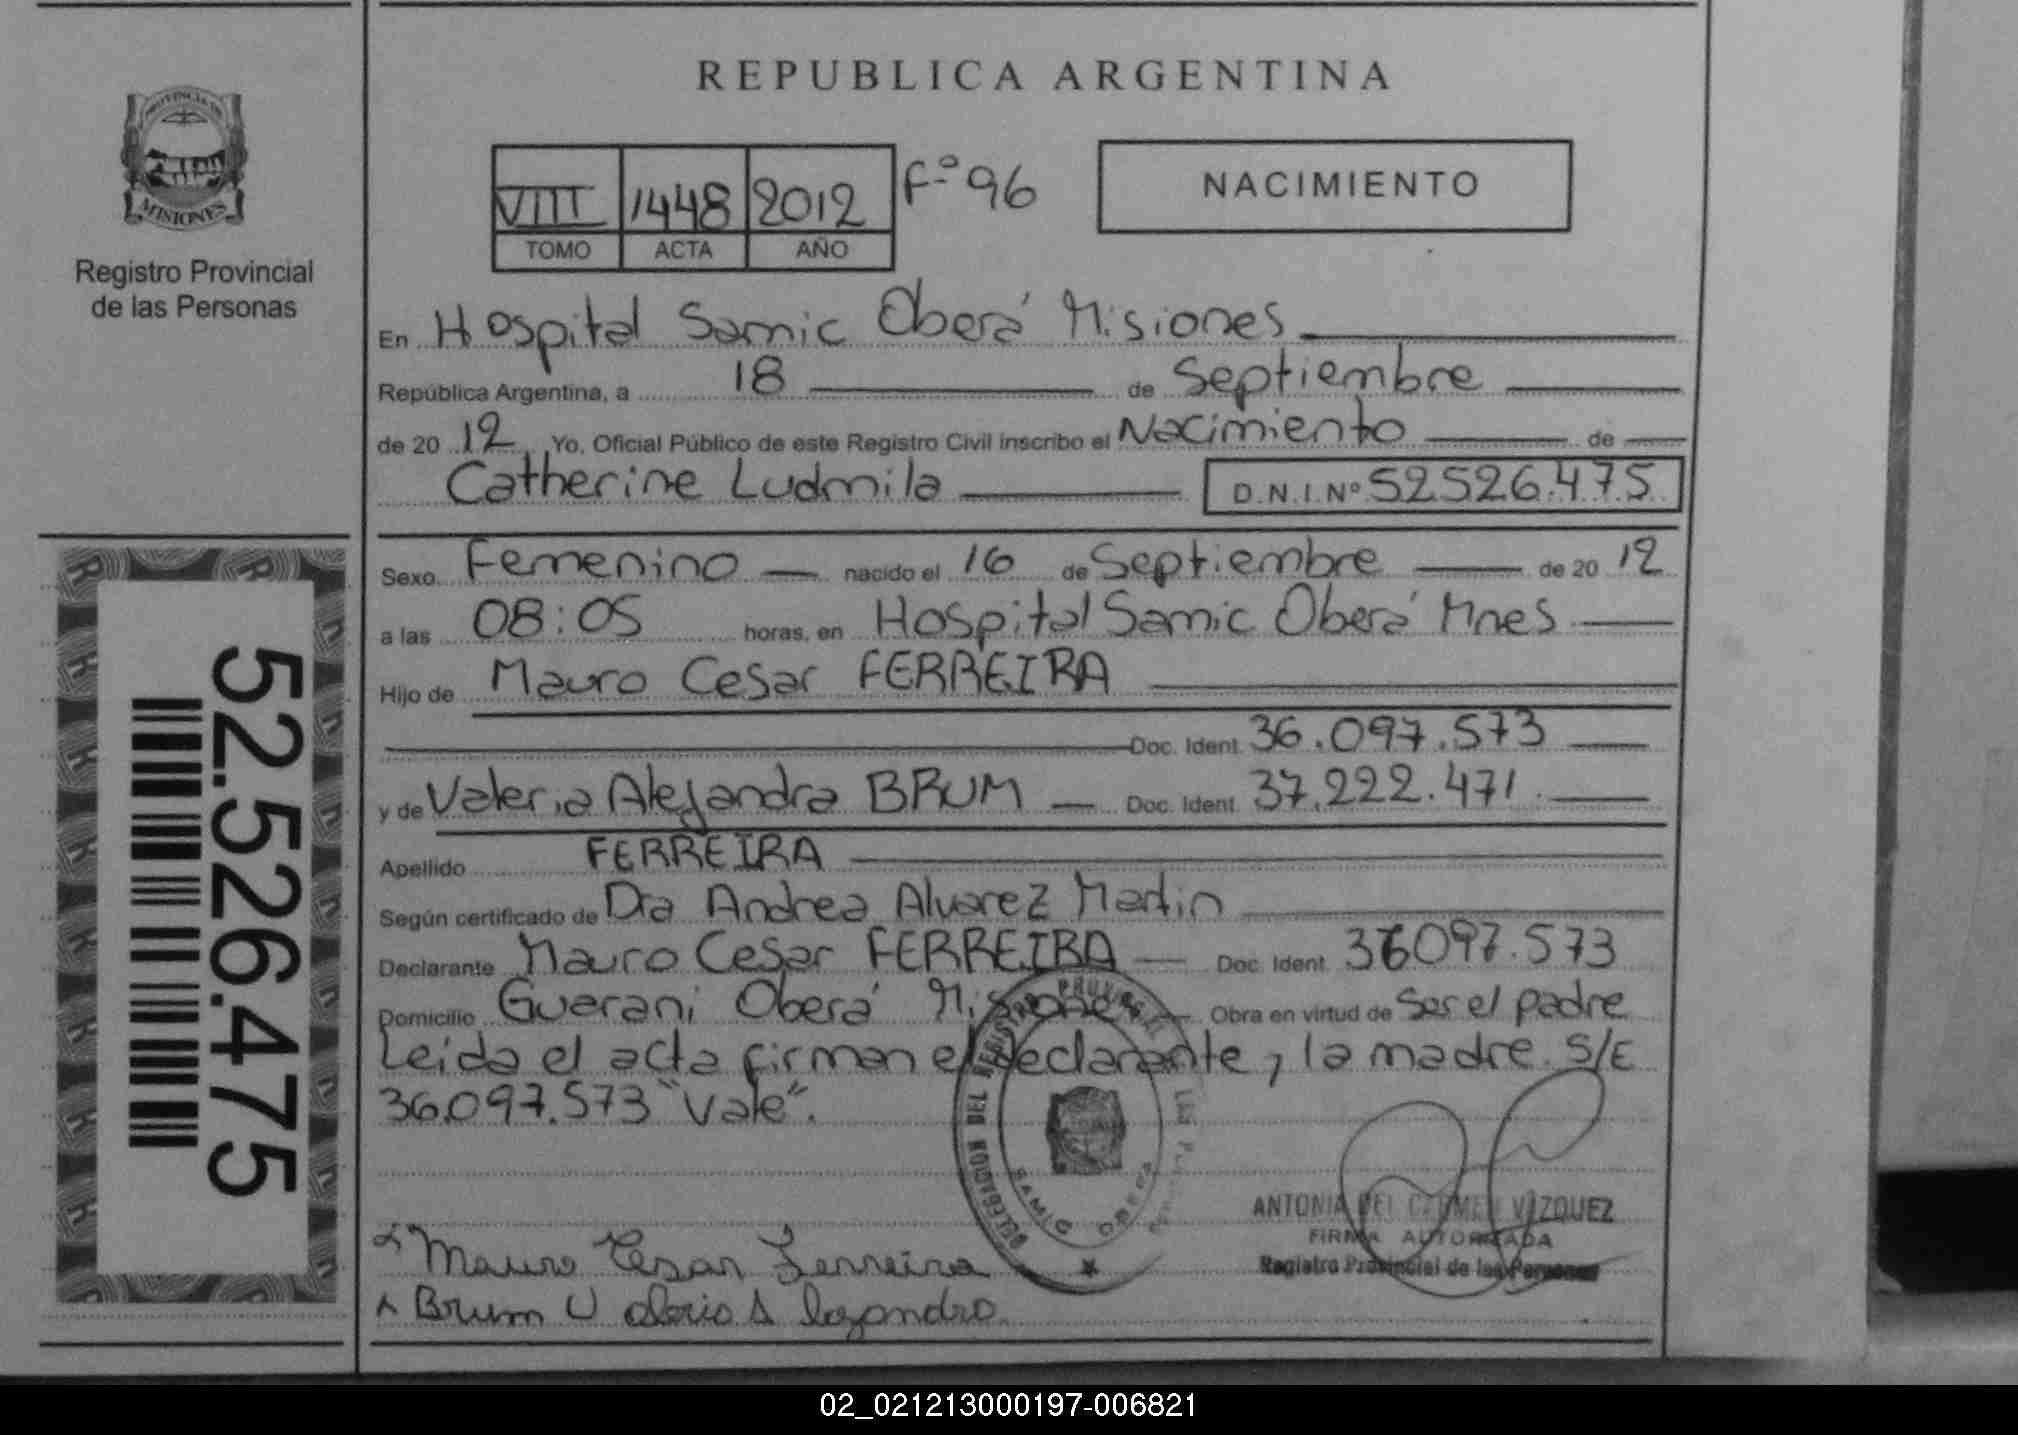 REPUBLICA ARGENTINA
PROVINCIA DE
MISIONES
Registro Provincial
de las Personas
VIII 1448 2012 Fº 96
TOMO ACTA AÑO
NACIMIENTO
En Hospital Samic Oberá Misiones
República Argentina, a 18 de Septiembre
de 20 12 Yo, Oficial Público de este Registro Civil inscribo el Nacimiento de
Catherine Ludmila D.N.I.Nº 52526.475
Sexo Femenino nacido el 16 de Septiembre de 20 12
a las 08:05 horas, en Hospital Samic Oberá Mnes
Hijo de Mauro Cesar FERREIRA
Doc. Ident. 36.097.573
y de Valeria Alejandra BRUM Doc. Ident. 37.222.471.
Apellido FERREIRA
Según certificado de Dra Andrea Alvarez Martin
Declarante Mauro Cesar FERREIRA Doc. Ident. 36097.573
Domicilio Guarani Oberá Misiones Obra en virtud de Ser el padre
Leida el acta firman el declarante, la madre. S/E
36.097.573 "Vale".
DELEGACION DEL REGISTRO PROVINCIAL DE LAS
SAMIC OBERA
ANTONIA DEL CARMEN VAZQUEZ
FIRMA AUTORIZADA
Registro Provincial de las Personas
Mauro Cesar Ferreira
Brum Valeria Alejandra
52.526.475
02_021213000197-006821